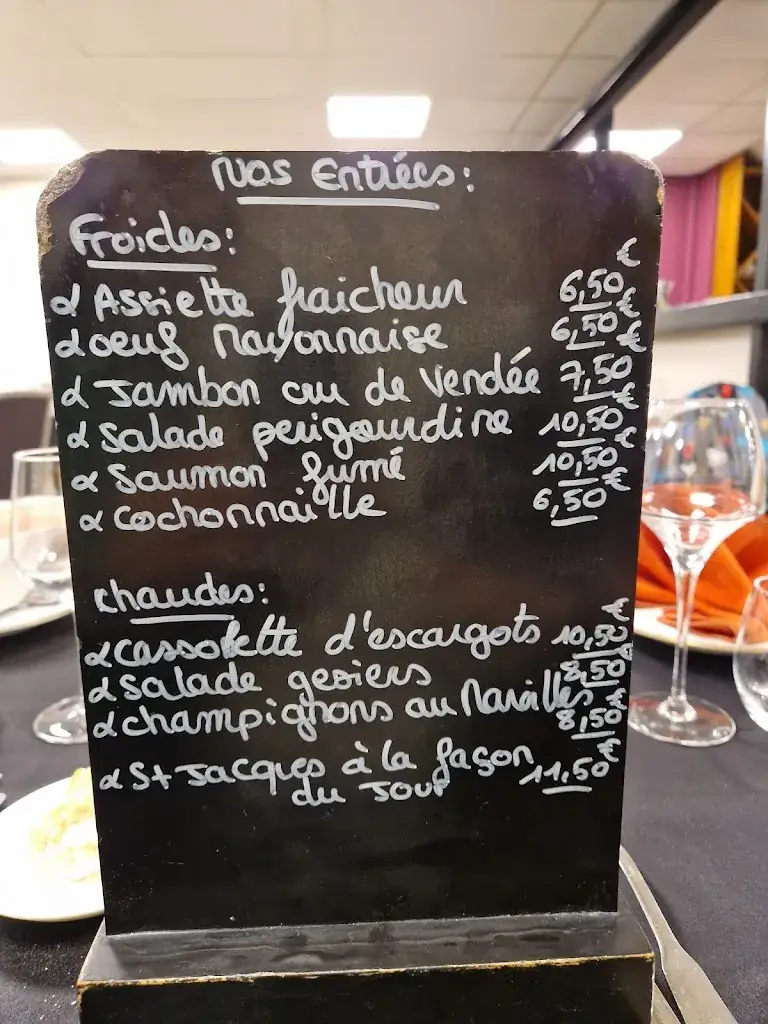 Nos Entrées:
Froides:
Assiette fraicheur 6,50€
oeuf Mayonnaise 6,50€
Jambon cru de Vendée 7,50€
Salade perigourdine 10,50€
Saumon fumé 10,50€
Cochonnaille 6,50€
Chaudes:
Cassolette d'escargots 10,50€
Salade gesiers 8,50€
Champignons au Maroilles 8,50€
St Jacques à la façon 11,50€
du Jour